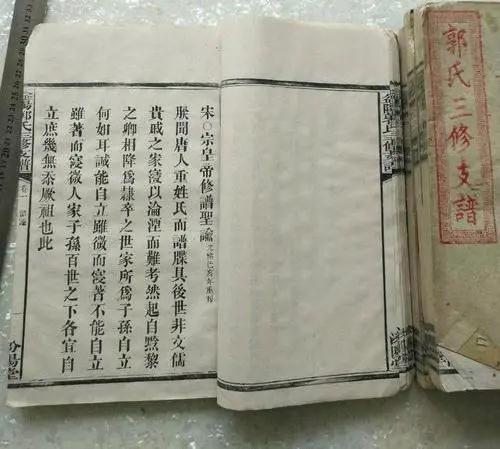 郭氏三修支譜
宋○宗皇帝修譜聖諭
朕聞唐人重姓氏而譜牒具後世非文儒
貴戚之家寖以淪湮而難考然起自黔黎
之卿相降爲隸卒之世家所爲子孫自立
何如耳誠能自立雖微而寖著不能自立
雖著而寖微人家子孫百世之下各宜自
立庶幾無忝厥祖也此
益陽郭氏三修支譜 卷一
一
汾陽堂